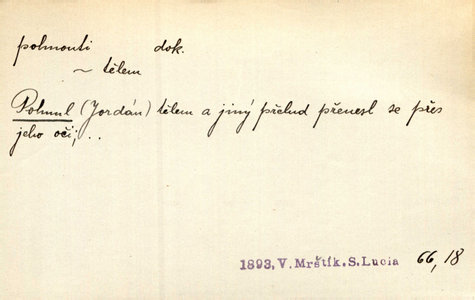 pohnouti dok.
~ tělem
Pohnul (Jordán) tělem a jiný přelud přenesl se přes
jeho oči, . .
1893, V. Mrštík. S. Lucia 66, 18